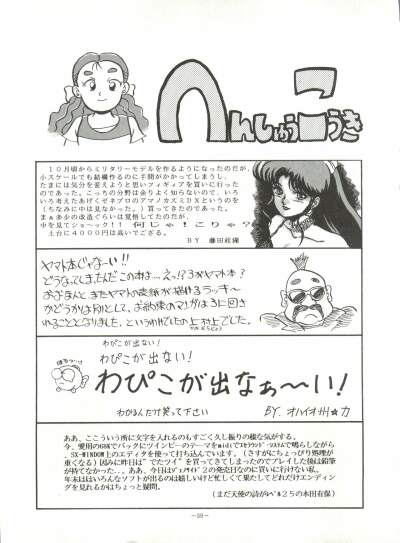 へんしゅうこうき
10月頃からミリタリーモデルを作るようになったのだが、
小スケールでも結構作るのに手間がかかってしまうし、
たまには気分を変えようと思いフィギュアを買いに行った
のであった。こっちの分野は余りよく知らないので、いろ
いろ考えたあげくゼネプロのアマノカズミDXというのを
(ちなみに中は見なかった。)買ってきてたのであった。
まぁ多少の改造ぐらいは覚悟してたのだが、
中を見てショ～ック!! 何じゃ!こりゃ?
土台に4000円は高いでござる。
BY 藤田
ヤマト本じゃな～い!!
どうなってしまったんだこの本は…えっ!?3がヤマト本?
かどうかは別として、
れることとなりました。というわけでTOP上村上でした。
わぴこが出ない!
わぴこが出ない!
わぴこが出なぁ～～い!
わかる人だけ笑って下さい
BY. オハイオ州☆力
ああ、ここういう所に文字を入れるのもすごく久し振りの様な気がする。
今、愛用の68Kでバックにツインビーのテーマをmidiで鳴らしながら
SX-WINDOW上のエディタを使って打ち込んでいます。(さすがにちょっぴり処理が
重くなる)因みに昨日は"でたツイ"を買ってきてしまったのでプレイした後は鉛筆
が持てなかった..。ああ、今日はジェノサイド2の発売日なのに買いに行けない私。
年末はほいろんなソフトが出るのは嬉しいけど忙しくて果たしてどれだけエンディン
グを見れるかはちょっと疑問。
(まだ天使の詩がレベル25の木田有保)
-59-